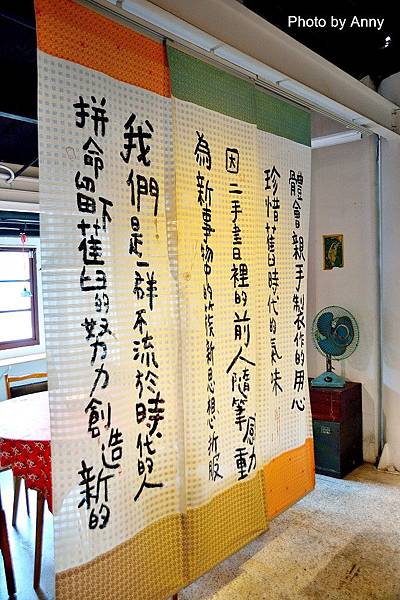 Photo by Anny
體會親手製作的用心
珍惜舊時代的氣味
因二手書裡的前人隨筆感動
為新事物中的新思想折服
我們是一群不流於時代的人
拼命留下舊的努力創造新的